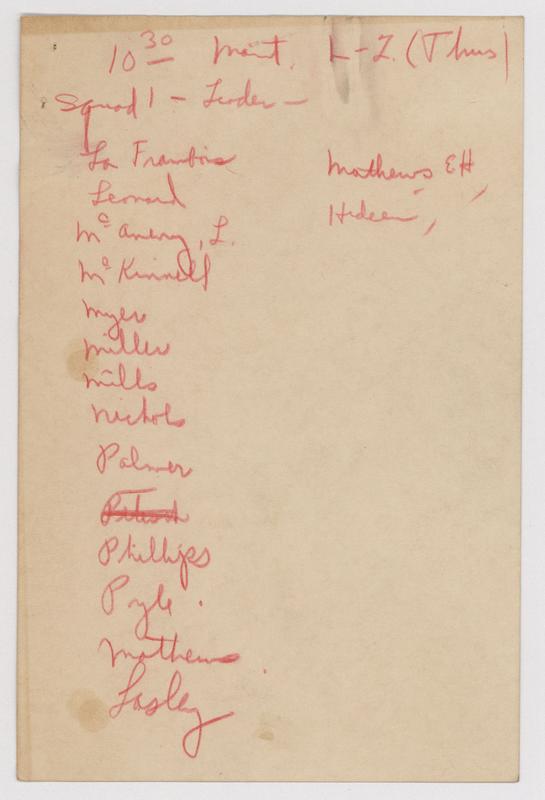 10 30 Maint. L-Z. (Thus)
Squad 1 - Leader -
La Frambois
Leonard
Mc Anery, L.
Mc Kinnell
Myer
Miller
Mills
Nichols
Palmer
Phillips
Pyle.
Mathews
Lasley
Mathews EH
Hedeen